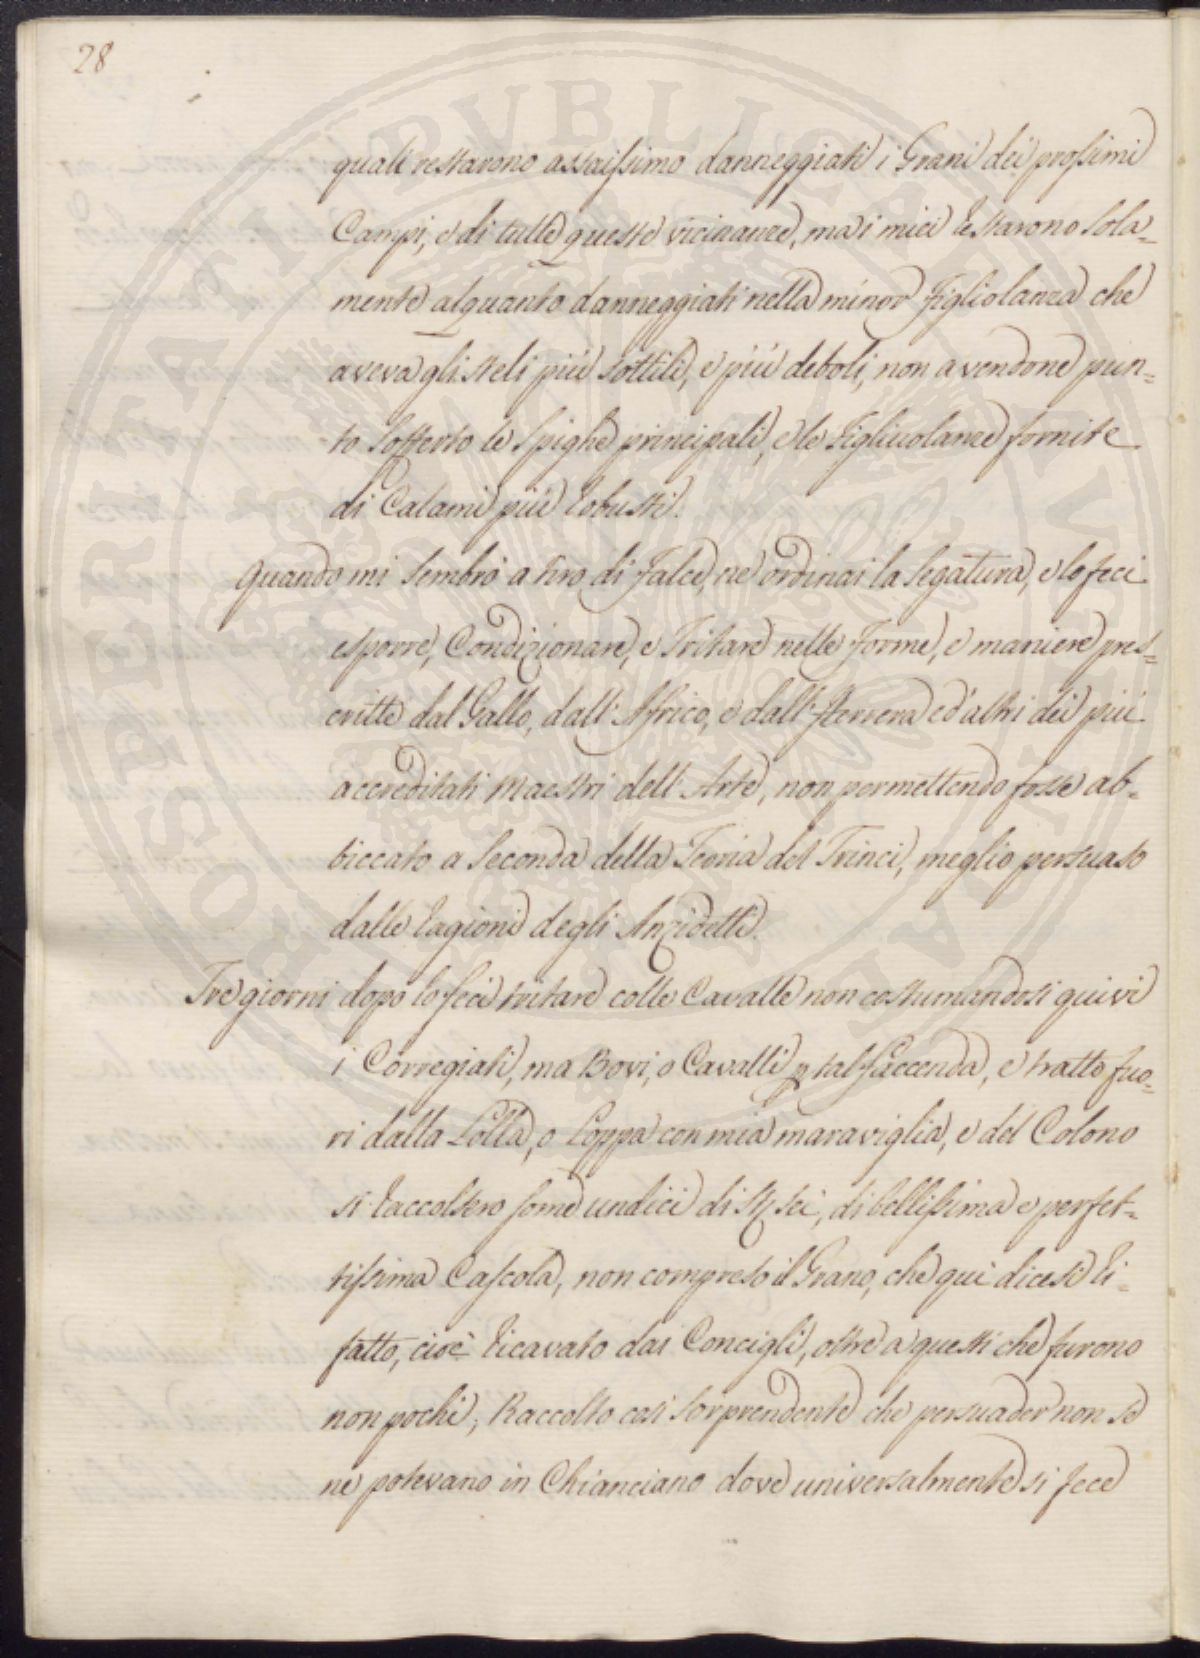 28
quali restarono assaissimo danneggiati i Grani dei prossimi
Campi, e di tutte queste vicinanze, ma i miei restarono sola=
mente alquanto danneggiati nella minor Figliolanza che
aveva gli steli più sottili, e più deboli, non avendone pun=
to sofferto le Spighe principali, e le Figliuolanze fornite
di Calami più robusti.
Quando mi sembrò a tiro di Falce, ne ordinai la Segatura, e lo feci
esporre, Condizionare, e Tritare nelle Forme, e maniere pres=
critte dal Gallo, dall' Affrico, e dall' Herrera ed altri dei più
accreditati Maestri dell' Arte, non permettendo fosse ab=
biccato a seconda della Teoria del Trinci, meglio persuaso
dalle ragioni degli Anzidetti.
Tre giorni dopo lo feci tritare colle Cavalle non costumandosi quivi
i Corregiati, ma Bovi, o Cavalli p tal faccenda, e tratto fuo=
ri dalla Lolla, o Loppa con mia maraviglia, e del Colono
si raccolsero some undici di sei, di bellissima e perfet=
tissima Cascola, non compreso il Grano, che qui dicesi ri=
fatto, cioè ricavato dai Concigli, oltre a questi che furono
non pochi; Raccolto così sorprendente che persuader non se
ne potevano in Chianciano dove universalmente si fece
PROSPERITATI PUBLICAE AUGENDAE